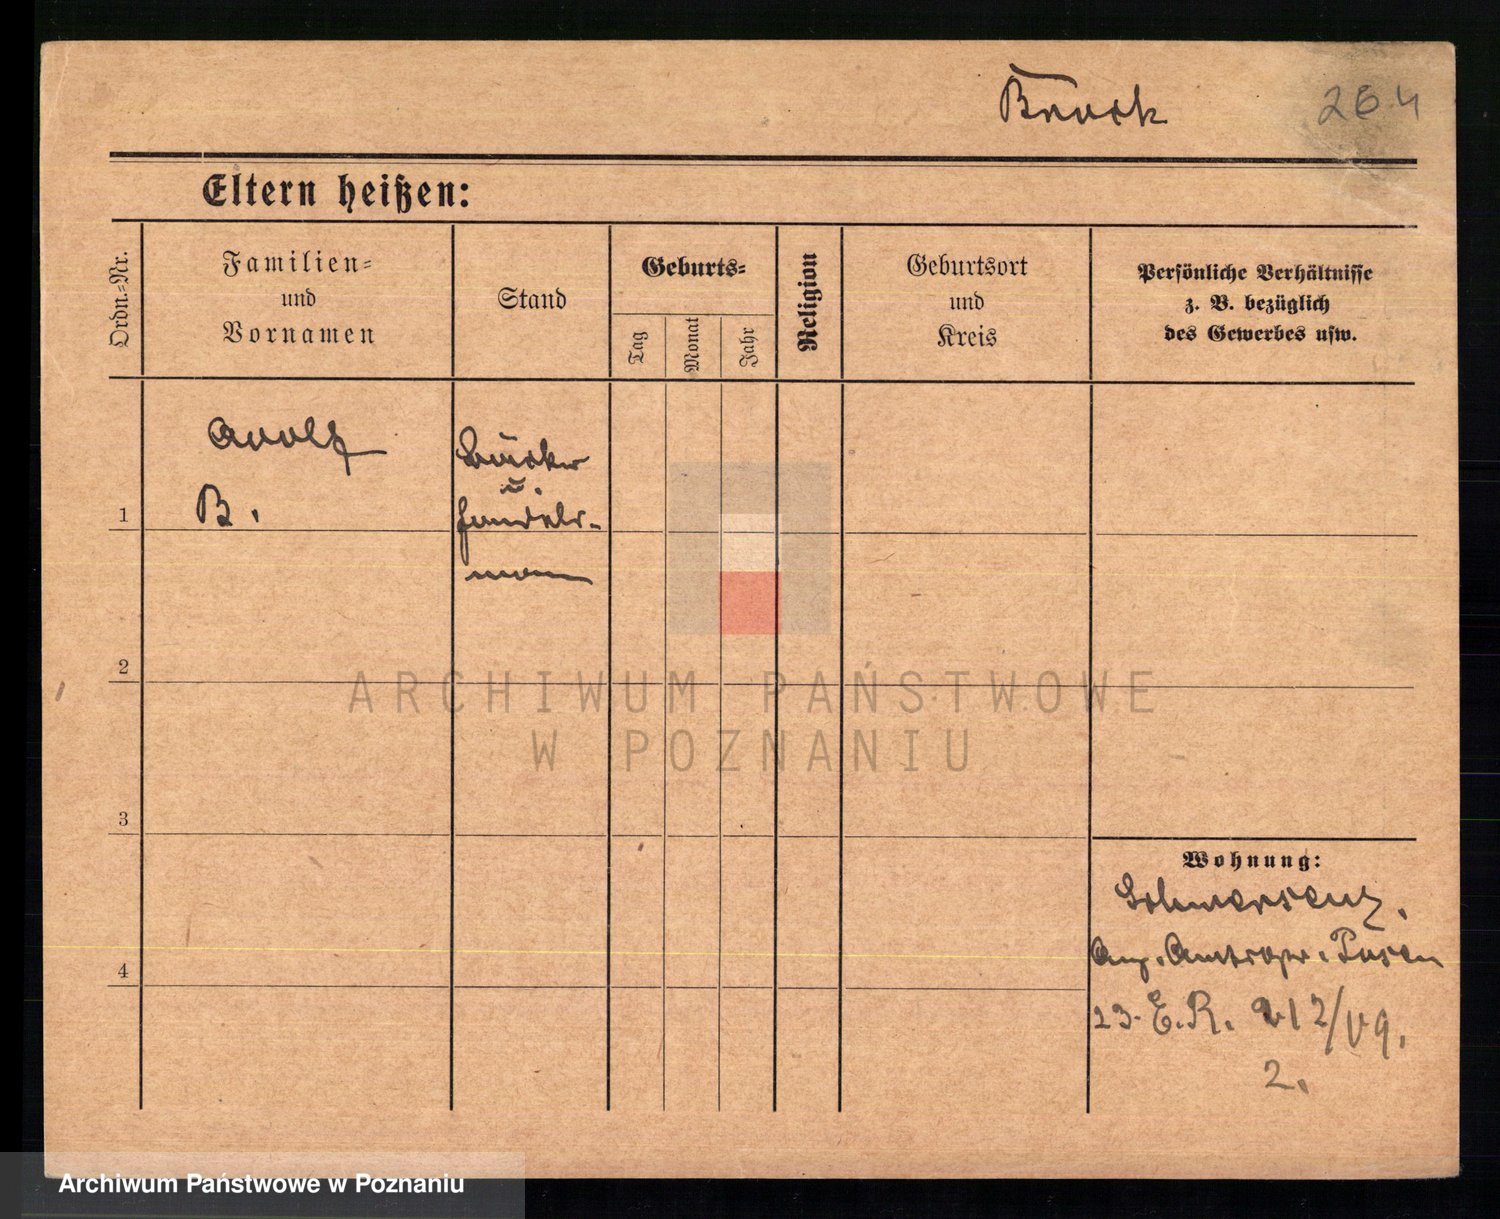 264
Eltern heißen:
Ordn.-Nr.
Familien-
und
Vornamen
Stand
Geburts-
Tag
Monat
Jahr
Religion
Geburtsort
und
Kreis
Persönliche Verhältnisse
z. B. bezüglich
des Gewerbes usw.
Adolf
B.
1
u.
Handels-
mann
2
3
4
ARCHIWUM PAŃSTWOWE
W POZNANIU
Wohnung:
Schwersenz.
Posen
23. E. R. 212/09.
2.
Archiwum Państwowe w Poznaniu